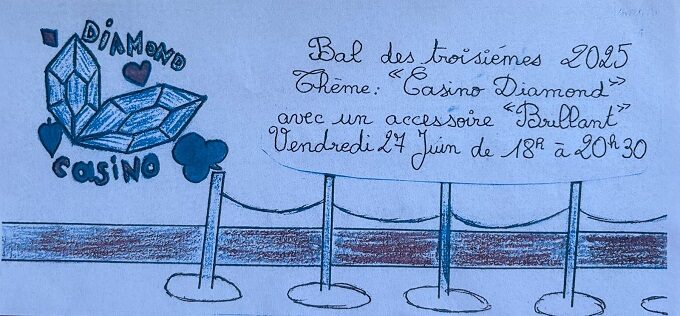 DIAMOND
CASINO
Bal des troisiémes 2025
Thème: "Casino Diamond"
avec un accessoire "Brillant"
Vendredi 27 Juin de 18h à 20h30